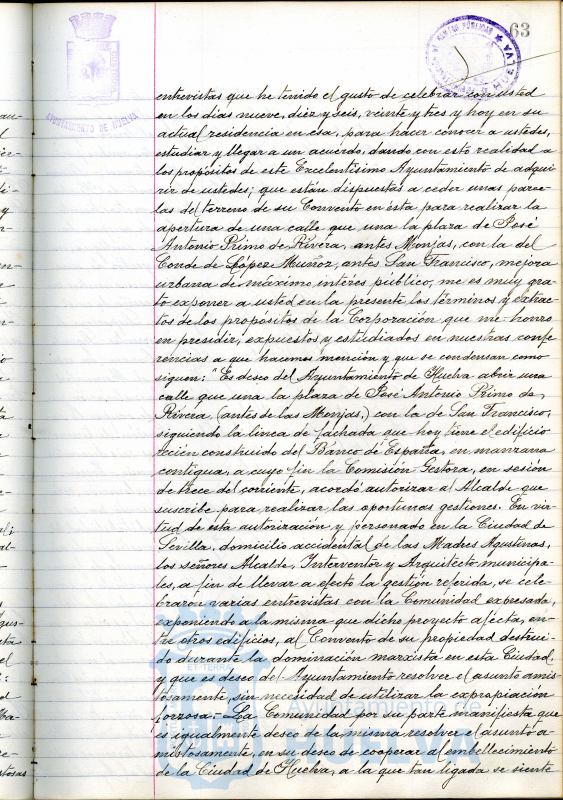 63
AYUNTAMIENTO DE HUELVA
entrevistas que he tenido el gusto de celebrar con usted
en los días nueve, diez y seis, veinte y tres y hoy en su
actual residencia en esa, para hacer conocer a ustedes,
estudiar y llegar a un acuerdo, dando con esto realidad a
los propósitos de este Excelentísimo Ayuntamiento de adqui
rir de ustedes; que están dispuestas a ceder unas parce-
las del terreno de su Convento en ésta para realizar la
apertura de una calle que una la plaza de José
Antonio Primo de Rivera, antes Monjas, con la del
Conde de López Muñoz, antes San Francisco, mejora
urbana de máximo interés público, me es muy gra-
to exponer a usted en la presente los términos y extrac-
tos de los propósitos de la Corporación que me honro
en presidir, expuestos y estudiados en nuestras confe
rencias a que hacemos mención y que se condensan como
siguen: "Es deseo del Ayuntamiento de Huelva abrir una
calle que una la plaza de José Antonio Primo de
Rivera, (antes de las Monjas,) con la de San Francisco,
siguiendo la linea de fachada que hoy tiene el edificio
recién construido del Banco de España, en manzana
contigua, a cuyo fin la Comisión Gestora, en sesión
de trece del corriente, acordó autorizar al Alcalde que
suscribe para realizar las oportunas gestiones. En vir-
tud de esta autorización y personado en la Ciudad de
Sevilla, domicilio accidental de las Madres Agustinas,
los señores Alcalde, Interventor y Arquitecto municipa-
les, a fin de llevar a efecto la gestión referida, se cele-
braron varias entrevistas con la Comunidad expresada,
exponiendo a la misma que dicho proyecto afecta, en-
tre otros edificios, al Convento de su propiedad destrui-
do durante la dominación marxista en esta Ciudad,
y que es deseo del Ayuntamiento resolver el asunto amis-
tosamente sin necesidad de utilizar la expropiación
forzosa.- La Comunidad por su parte manifiesta que
es igualmente deseo de la misma resolver el asunto a-
mistosamente, en su deseo de cooperar al embellecimiento
de la Ciudad de Huelva, a la que tan ligada se siente
Ayuntamiento de
HUELVA